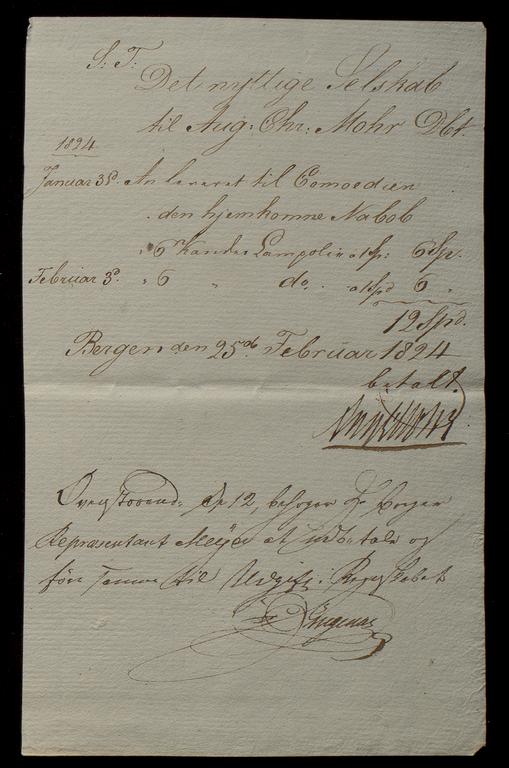 S: T:
Det nyttige Selskab
til Aug: Chr: Mohr Dbt.
1824
Januar 3d. An leveret til Comoedien
den hjemkomne Nabob
" 6 Kander Lampolie a 1Sp: 6 Sp.
Februar 3d. " 6 " do. a 1Spd 6 "
12 Spd.
Bergen den 25d. Februar 1824
betalt.
12, behager Hr
Repræsentant Meyer at udbetale og
føre samme til Udgift i Regnskabet